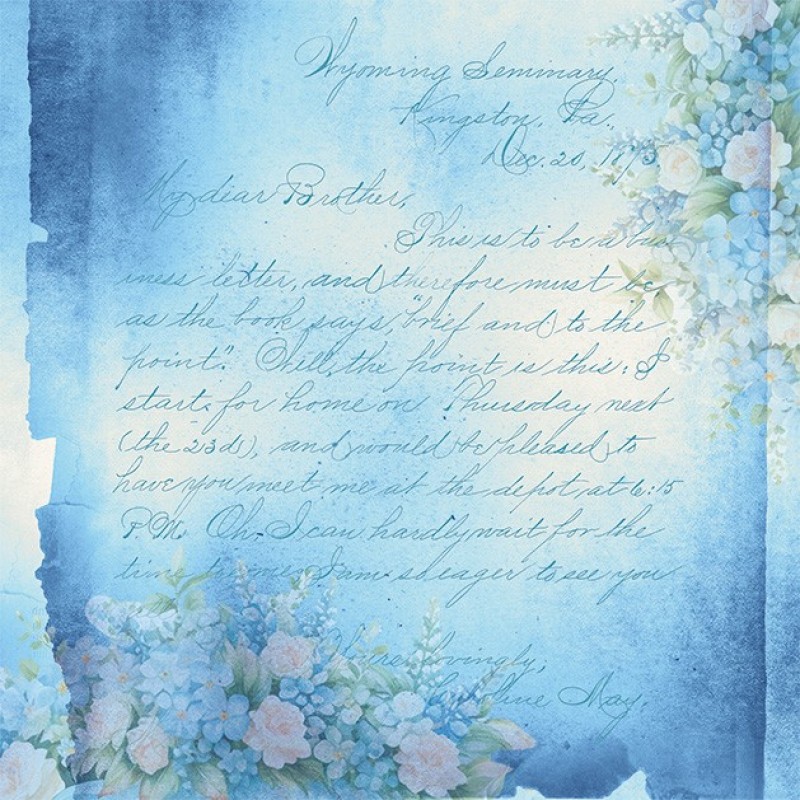 Wyoming Seminary,
Kingston, Pa.,
Dec. 20, 1875
My dear Brother,
This is to be a bus
iness letter, and therefore must be
as the book says, "brief and to the
point". Well, the point is this: I
start for home on Thursday next
(the 23d), and would be pleased to
have you meet me at the depot, at 6:15
P.M. Oh. I can hardly wait for the
time to come I am so eager to see you
Yours lovingly,
May.